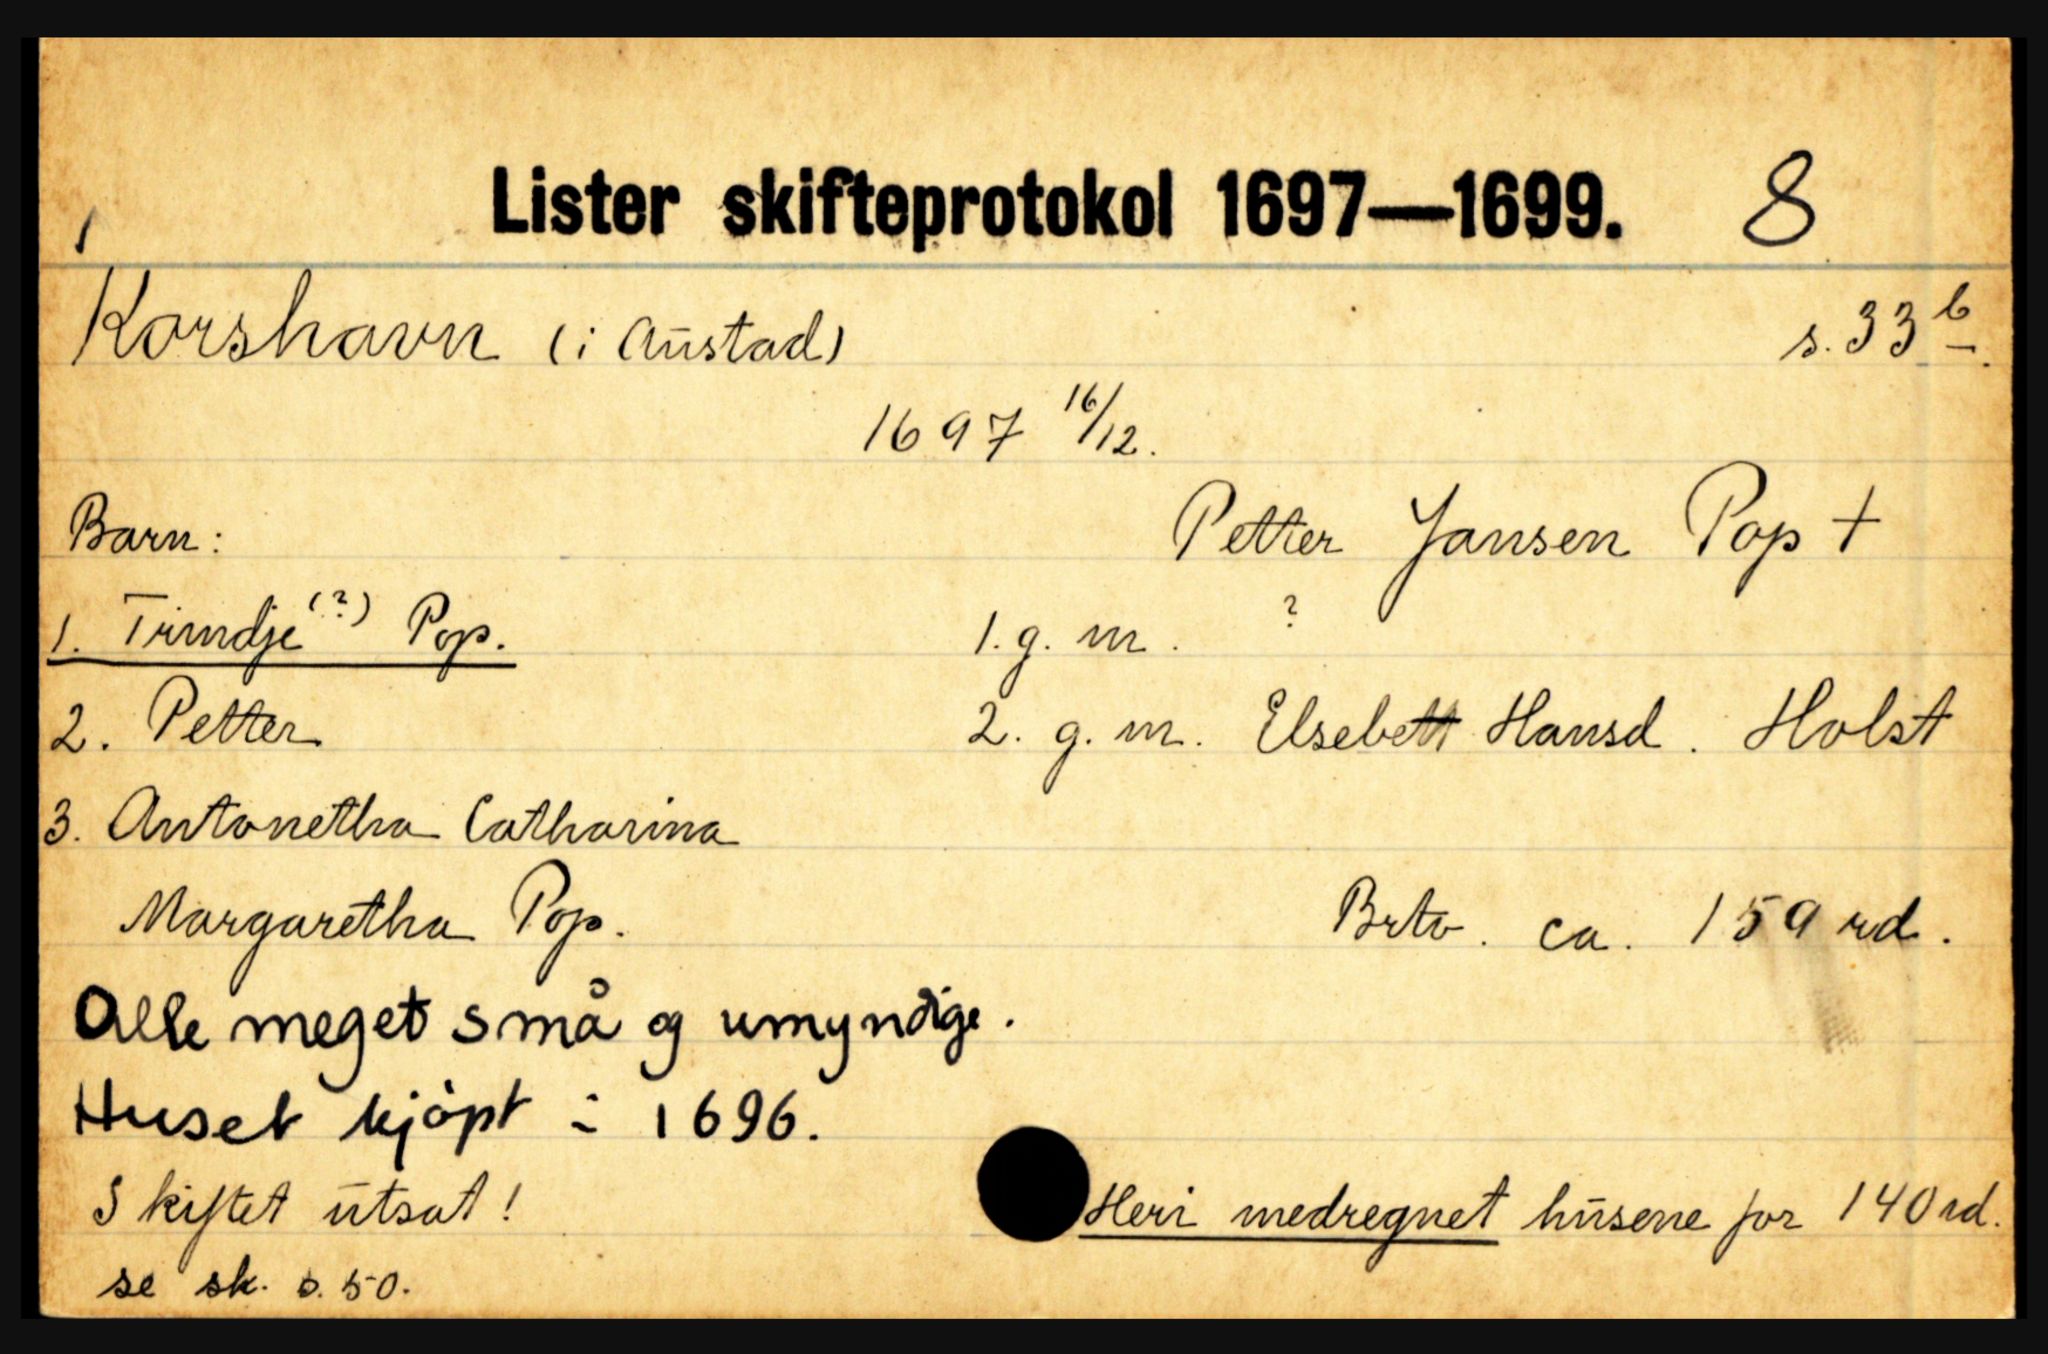 Lister skifteprotokol 1697—1699. 8
1
Korshavn (i Austad) s. 33 b.
1697 16/12.
Barn: Petter Jansen Pop †
1. Trindje (?) Pop. 1. g. m. ?
2. Petter 2. g. m. Elsebett Hansd. Holst
3. Antonetha Catharina
Margaretha Pop. Brto. ca. 159 rd.
Alle meget små og umyndige.
Huset kjöpt i 1696.
Skiftet utsat! Heri medregnet husene for 140 rd.
se sk. s. 50.